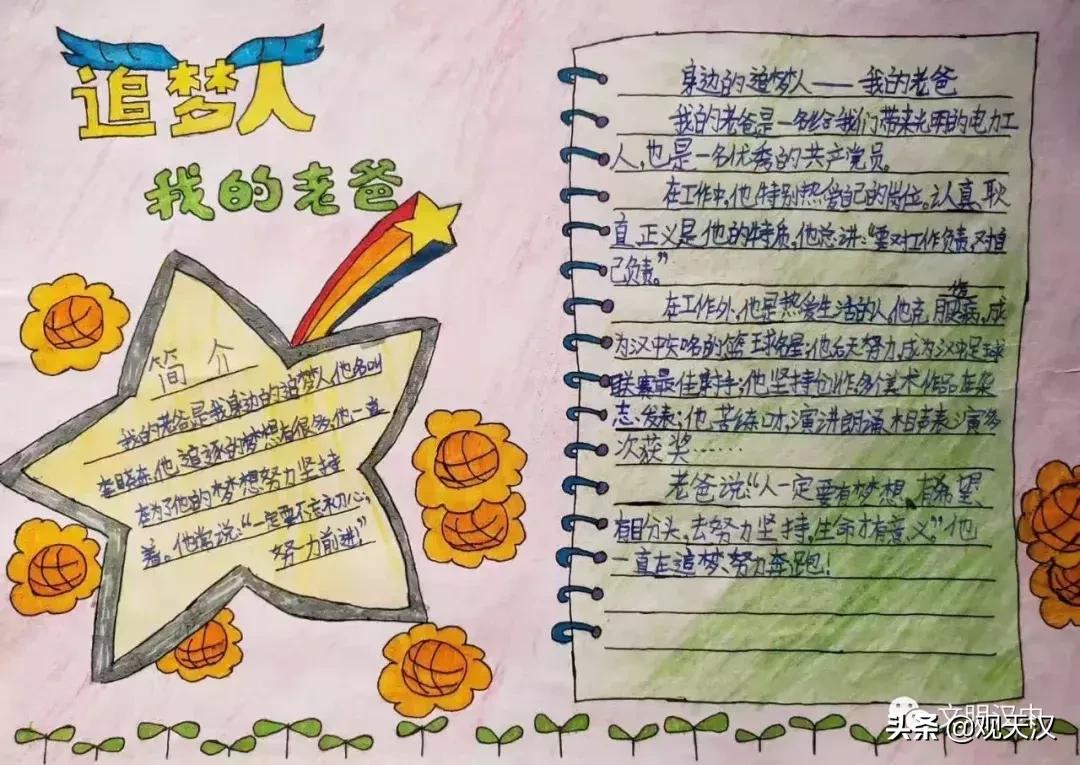 追梦人
我的老爸
简介
我的老爸是我身边的追梦人他名叫
李晓东他追逐的梦想有很多,他一直
在为了他的梦想努力坚持
着。他常说:“一定要不忘初心,
努力前进!”
身边的追梦人——我的老爸
我的老爸是一名给我们带来光明的电力工
人,也是一名优秀的共产党员。
在工作中,他特别热爱自己的岗位。认真耿
直正义是他的特质,他总讲:“要对工作负责,对自
己负责。”
在工作外,他是热爱生活的人他克服 病,成
为汉中知名的篮球名星;他后天努力,成为汉中足球
联赛最佳射手;他坚持创作多个美术作品在杂
志发表;他苦练口才,演讲朗诵、相声表演多
次获奖……
老爸说:“人一定要有梦想,有希望
有盼头,去努力坚持,生命才有意义。”他
一直在追梦、努力奔跑!
文明汉中
头条@观天汉